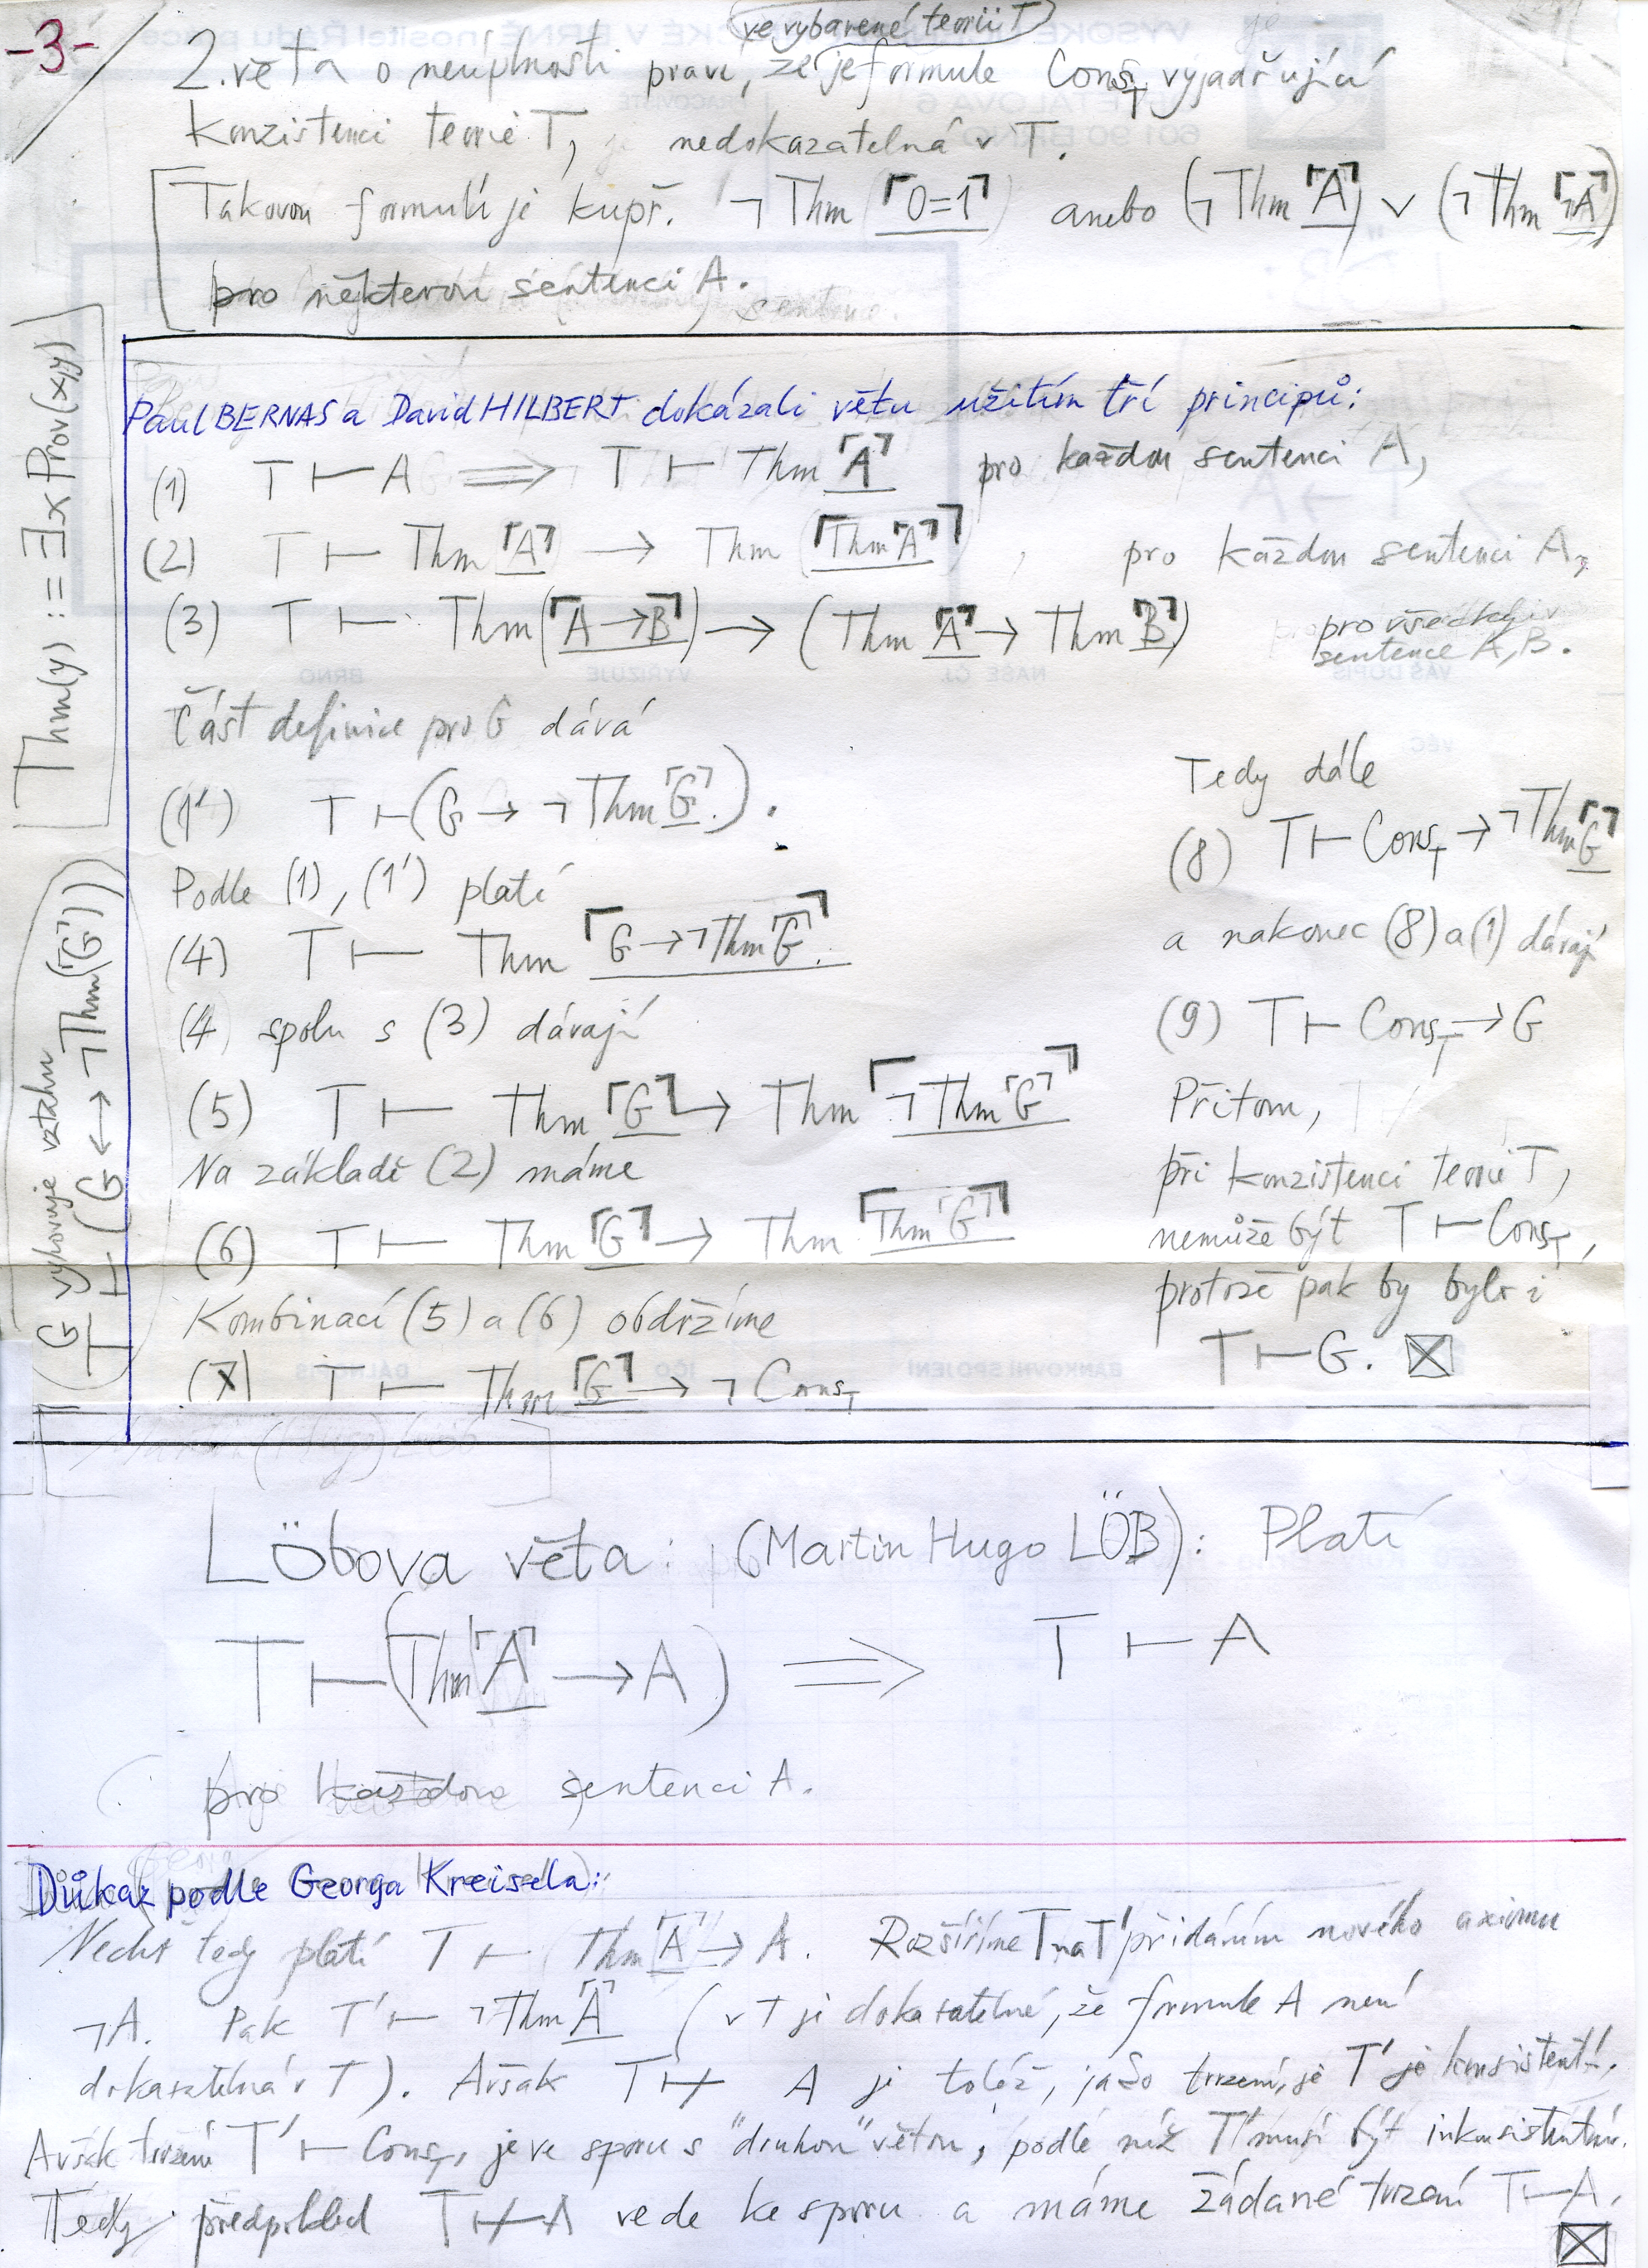 -3-
ve vybarené teorii T
2. věta o neúplnosti praví, že je formule Cons_T vyjadřující
konzistenci teorie T, nedokazatelná v T.
Takovou formulí je kupř. ¬Thm(⌜0=1⌝) anebo (¬Thm ⌜A⌝) ∨ (¬Thm ⌜¬A⌝)
pro některou sentenci A.
Thm(y) :≡ ∃x Prov(x,y)
(G vyhovuje vztahu
T ⊢ (G ↔ ¬Thm(⌜G⌝)))
Paul BERNAS a David HILBERT dokázali větu užitím tří principů:
(1) T ⊢ A ⟹ T ⊢ Thm ⌜A⌝ pro každou sentenci A,
(2) T ⊢ Thm ⌜A⌝ → Thm (⌜Thm ⌜A⌝⌝), pro každou sentenci A,
(3) T ⊢ Thm(⌜A → B⌝) → (Thm ⌜A⌝ → Thm ⌜B⌝) pro všechny
sentence A, B.
Část definice pro G dává
(1') T ⊢ (G → ¬Thm ⌜G⌝).
Podle (1), (1') platí
(4) T ⊢ Thm ⌜G → ¬Thm ⌜G⌝⌝.
(4) spolu s (3) dávají
(5) T ⊢ Thm ⌜G⌝ → Thm ⌜¬Thm ⌜G⌝⌝
Na základě (2) máme
(6) T ⊢ Thm ⌜G⌝ → Thm ⌜Thm ⌜G⌝⌝
Kombinací (5) a (6) obdržíme
(7) T ⊢ Thm ⌜G⌝ → ¬Cons_T
Tedy dále
(8) T ⊢ Cons_T → ¬Thm ⌜G⌝
a nakonec (8) a (1) dávají
(9) T ⊢ Cons_T → G
Přitom,
při konzistenci teorie T,
nemůže být T ⊢ Cons_T,
protože pak by bylo i
T ⊢ G. ☒
Löbova věta: (Martin Hugo LÖB): Platí
T ⊢ (Thm ⌜A⌝ → A) ⟹ T ⊢ A
pro každou sentenci A.
Důkaz podle Georga Kreisela:
Nechť tedy platí T ⊢ Thm ⌜A⌝ → A. Rozšíříme T na T' přidáním nového axiomu
¬A. Pak T' ⊢ ¬Thm ⌜A⌝ (v T je dokazatelné, že formule A není
dokazatelná v T). Avšak T ⊬ A je totéž, jako tvrzení, že T' je konsistentní.
Avšak tvrzení T' ⊢ Cons_T', je ve sporu s "druhou" větou, podle níž T' musí být inkonsistentní.
Tedy předpoklad T ⊬ A vede ke sporu a máme žádané tvrzení T ⊢ A.
☒